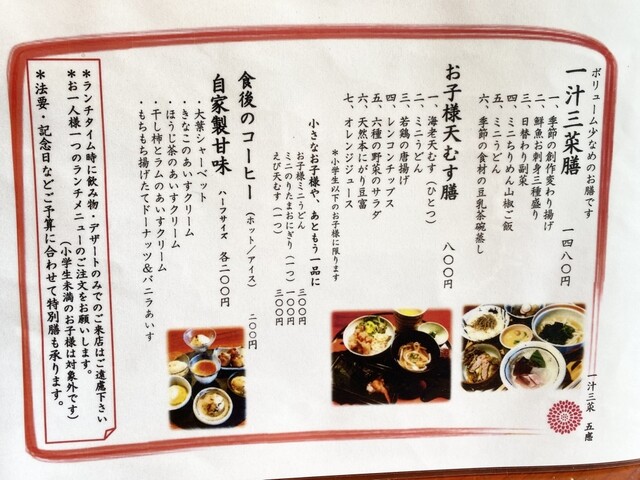 ボリューム少なめのお膳です
一汁三菜膳 一四八〇円
一、季節の創作変わり揚げ
二、鮮魚お刺身三種盛り
三、日替わり副菜
四、ミニちりめん山椒ご飯
五、ミニうどん
六、季節の食材の豆乳茶碗蒸し
お子様天むす膳 八〇〇円
一、海老天むす(ひとつ)
二、ミニうどん
三、若鶏の唐揚げ
四、レンコンチップス
五、六種の野菜のサラダ
六、天然本にがり豆富
七、オレンジジュース
*小学生以下のお子様に限ります
小さなお子様や、あともう一品に
お子様ミニうどん 三〇〇円
ミニのりたまおにぎり(一つ) 一〇〇円
えび天むす(一つ) 三〇〇円
食後のコーヒー(ホット/アイス) 二〇〇円
自家製甘味 ハーフサイズ 各二〇〇円
・大葉シャーベット
・きなこのあいすクリーム
・ほうじ茶のあいすクリーム
・干し柿とラムのあいすクリーム
・もちもち揚げたてドーナッツ&バニラあいす
*ランチタイム時に飲み物・デザートのみでのご来店はご遠慮下さい
*お一人様一つのランチメニューのご注文をお願いします。
(小学生未満のお子様は対象外です)
*法要・記念日などご予算に合わせて特別膳も承ります。
一汁三菜 五感